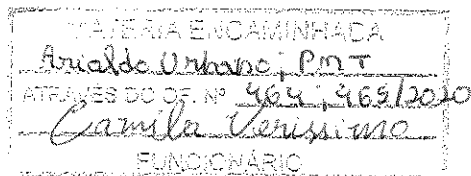 MATÉRIA ENCAMINHADA
Arialdo Urbano; PMT
ATRAVÉS DO OF. Nº 464; 465/2020
Camila Verissimo
FUNCIONÁRIO